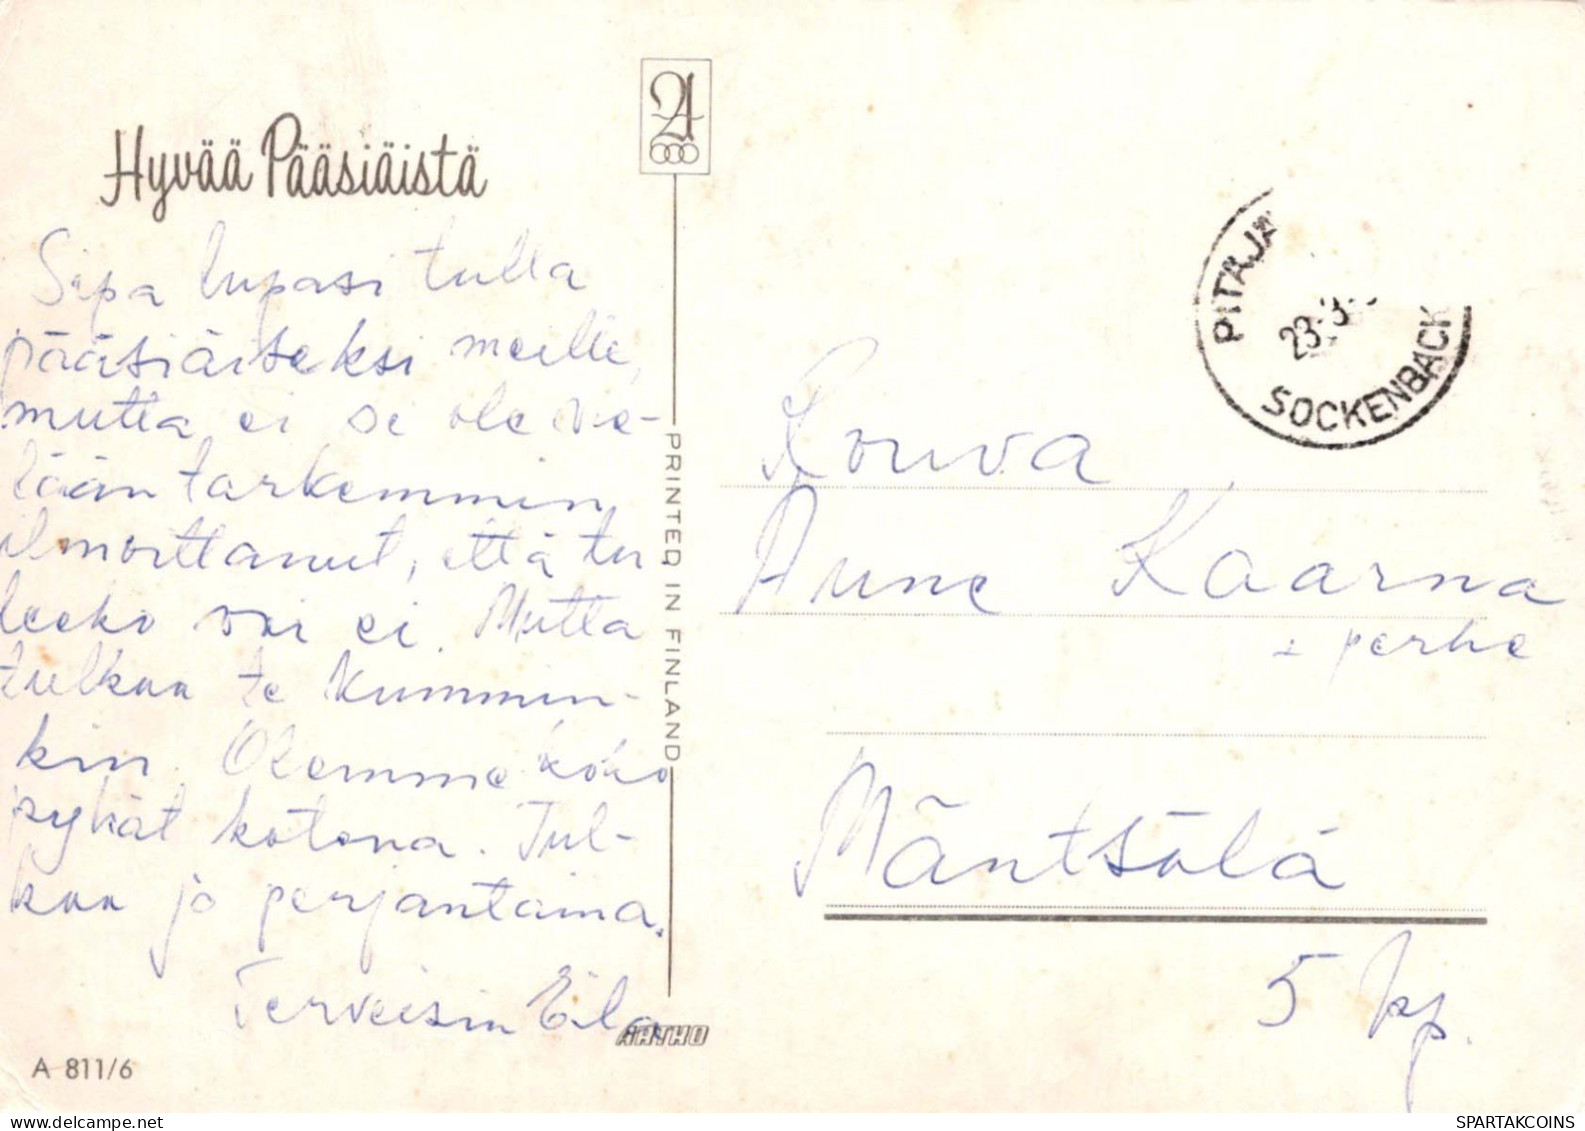 Hyvää Pääsiäistä
Sipa lupasi tulla
pääsiäiseksi meille,
mutta ei se ole vie-
lään tarkemmin
ilmoittanut, että tu
leeko vai ei. Mutta
tulkaa te kummin-
kin. Olemme koko
pyhät kotona. Tul-
kaa jo perjantaina.
Terveisin Eila
A 811/6
PRINTED IN FINLAND
AATHO
PITÄJÄ
23.3.
SOCKENBACK
Rouva
Aune Kaarna
+ perhe
Mäntsälä
5 kp.
SPARTAKCOINS